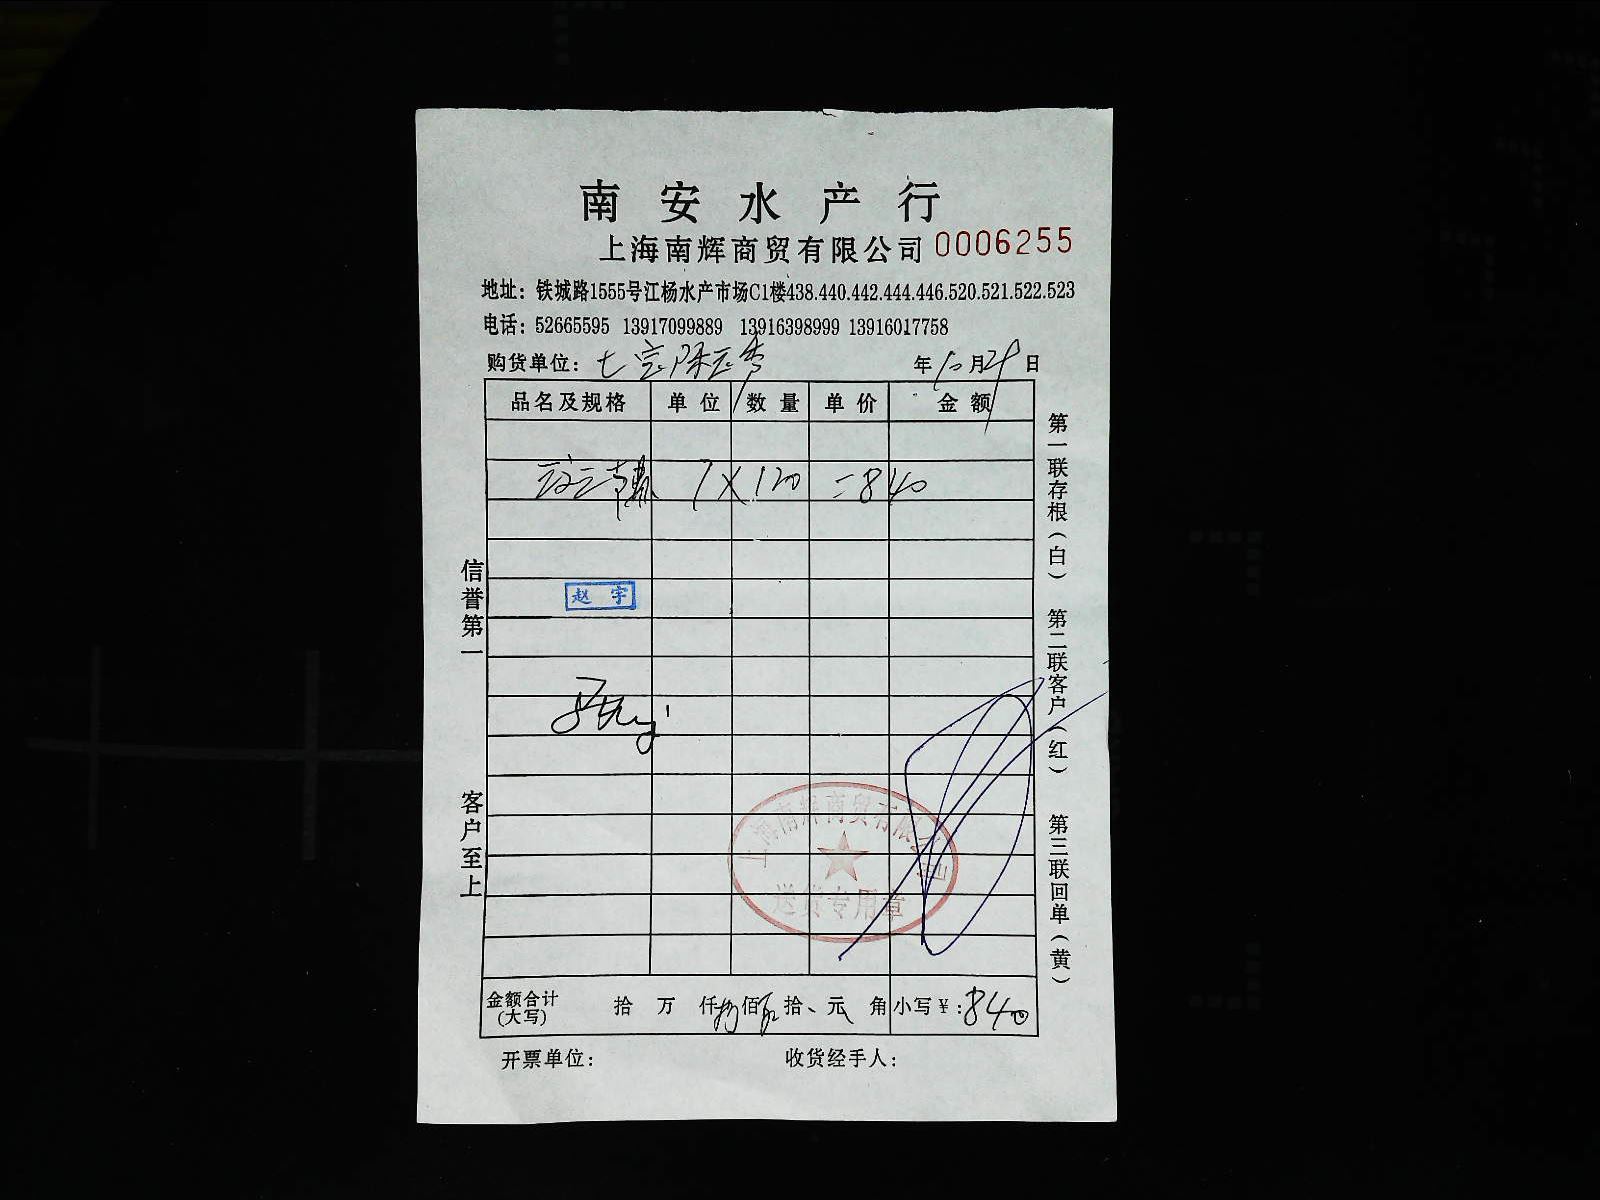 南安水产行
上海南辉商贸有限公司 0006255
地址：铁城路1555号江杨水产市场C1楼438.440.442.444.446.520.521.522.523
电话：52665595 13917099889 13916398999 13916017758
购货单位：七宝 年10月29日
品名及规格 单位 数量 单价 金额
7×120 =840
赵宇
信誉第一
客户至上
第一联存根（白）
第二联客户（红）
第三联回单（黄）
上海南辉商贸有限公司
送货专用章
金额合计 拾 万 仟 捌佰 拾 元 角 小写￥：840
（大写）
开票单位： 收货经手人：